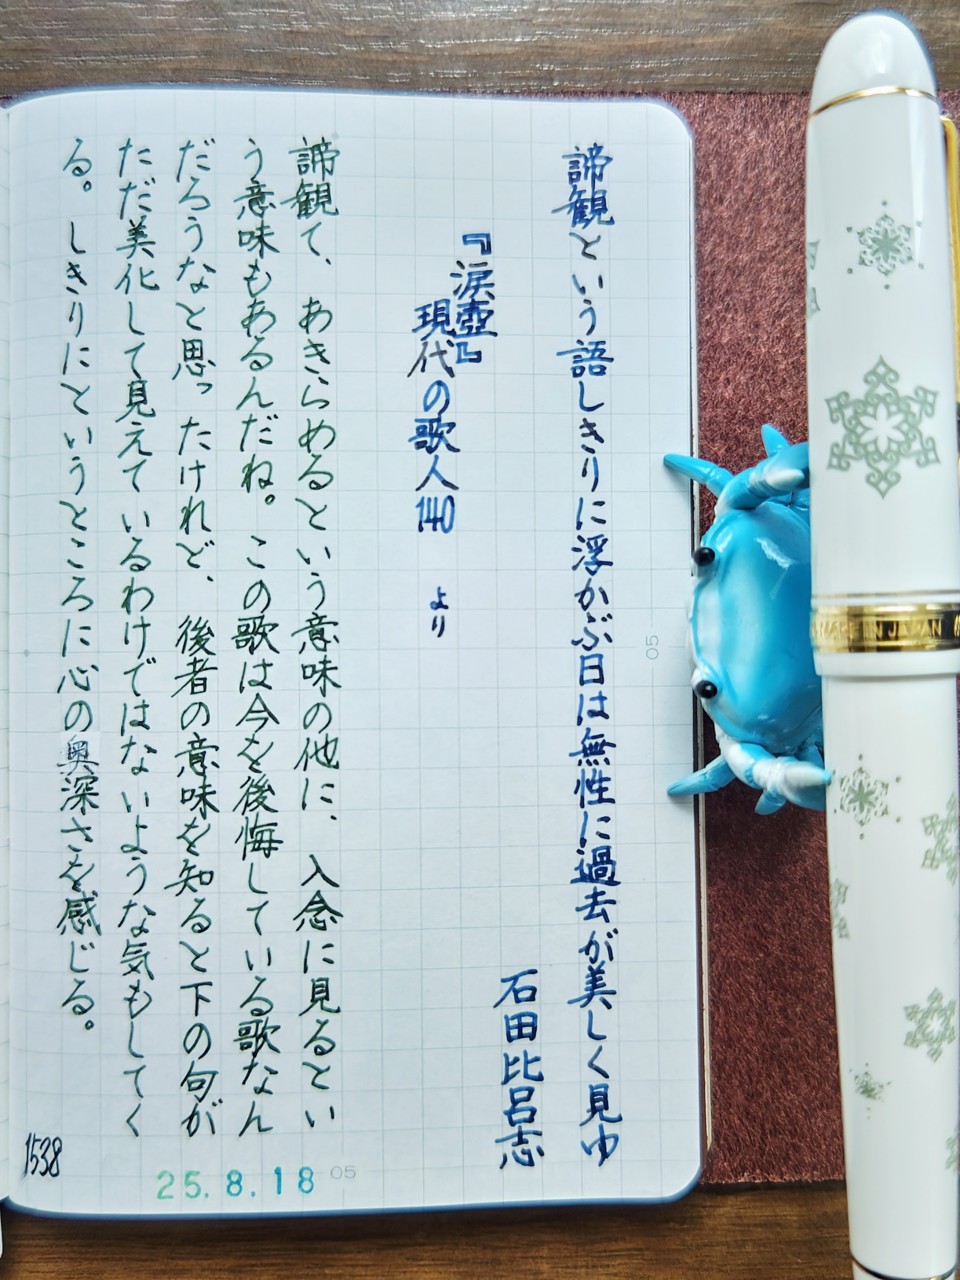 諦観という語しきりに浮かぶ日は無性に過去が美しく見ゆ
石田比呂志
『涙壺』
現代の歌人140 より
諦観て、あきらめるという意味の他に、入念に見るとい
う意味もあるんだね。この歌は今を後悔している歌なん
だろうなと思ったけれど、後者の意味を知ると下の句が
ただ美化して見えているわけではないような気もしてく
る。しきりにというところに心の奥深さを感じる。
1538
25.8.18
05
05
MADE IN JAPAN